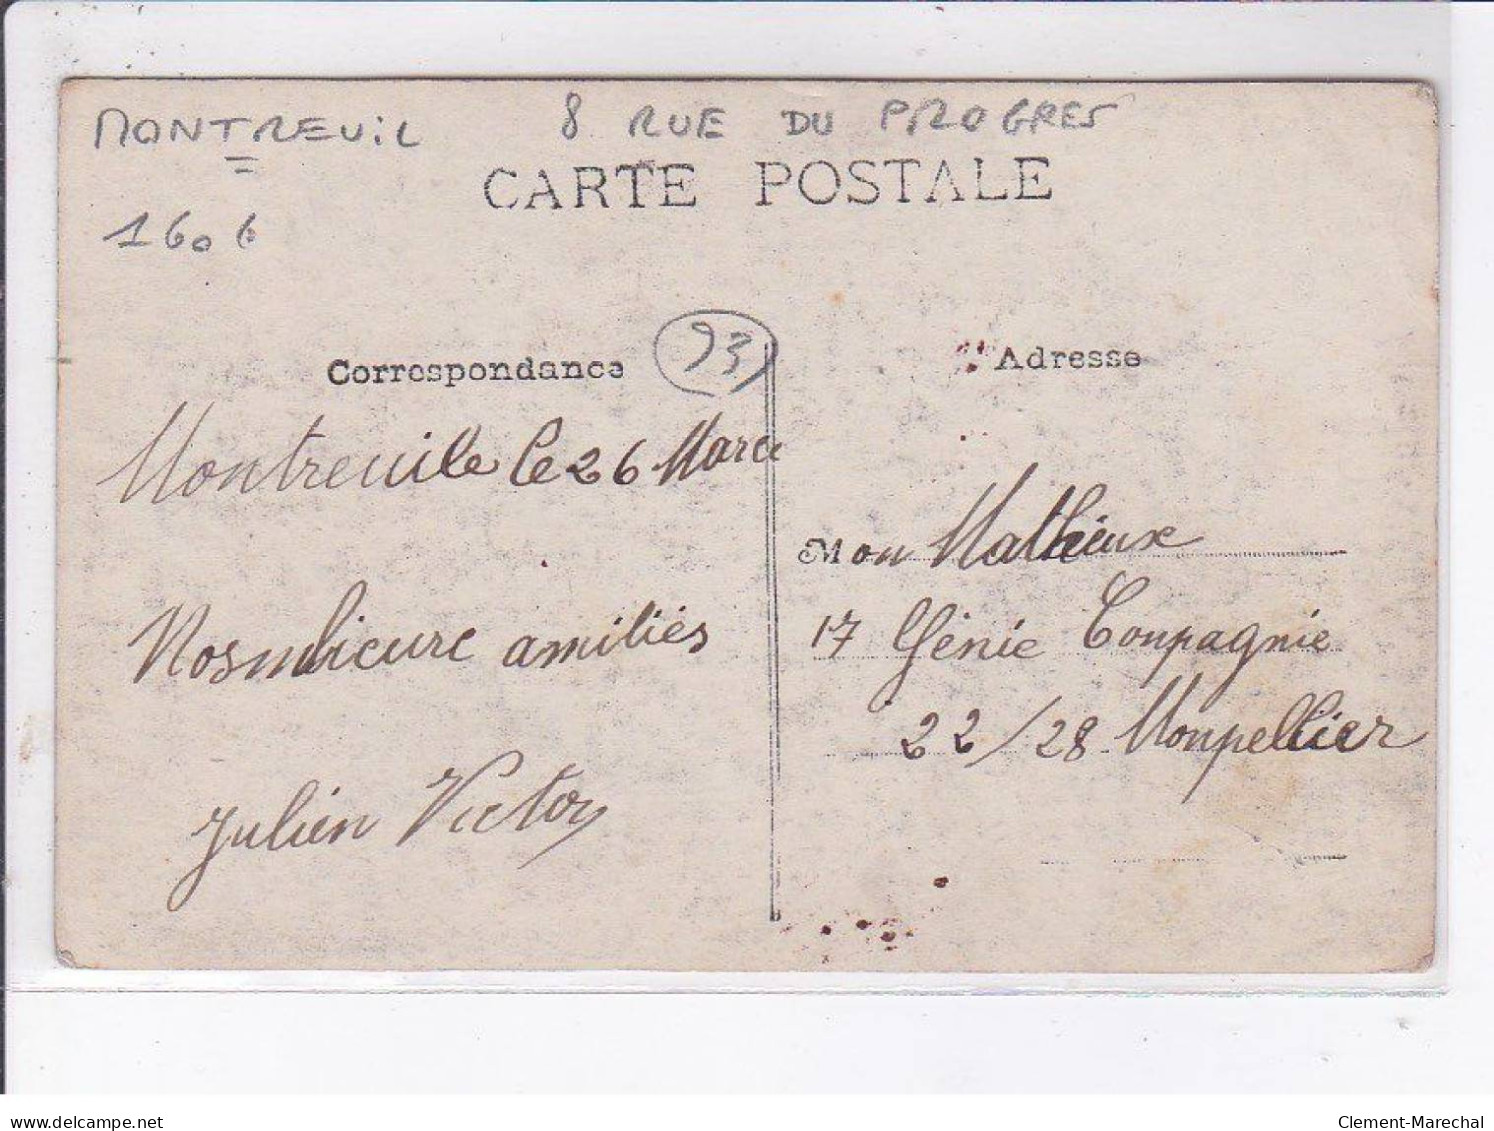 MONTREUIL 8 RUE DU PROGRES
CARTE POSTALE
1606
93
Correspondance
Montreuile le 26 Mars
Nosmlieure amitiés
Julien Victor
Adresse
Mon Mathieux
17 Génie Conpagnie
22/28 Monpellier
delcampe.net
Clement-Marechal